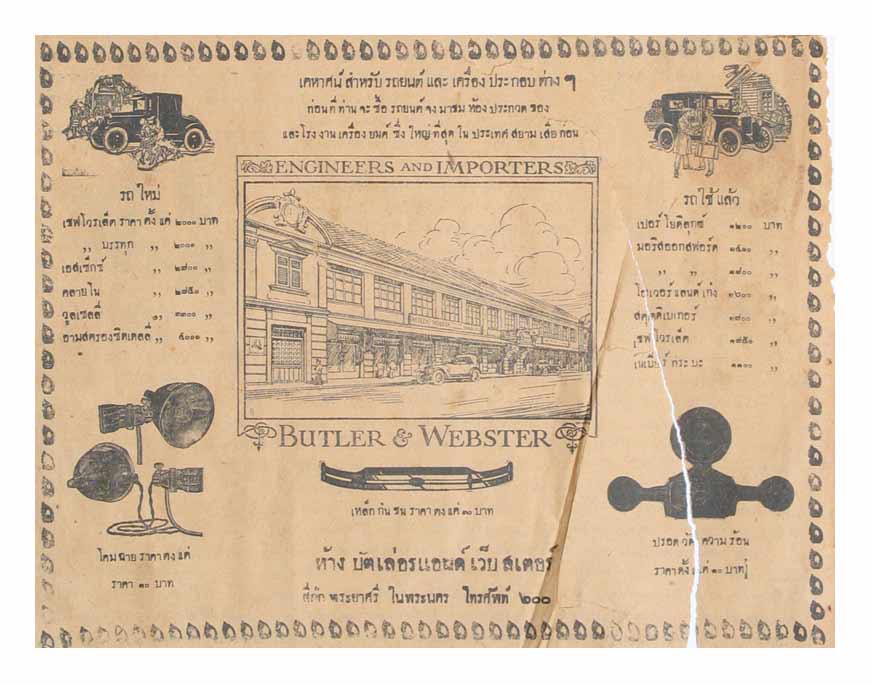 เคหาศน์ สำหรับ รถยนต์ และ เครื่อง ประกอบ ต่าง ๆ
ก่อน ที่ ท่าน จะ ซื้อ รถยนต์ จง มาชม ห้อง ประกวด ของ
และโรง งาน เครื่อง ยนต์ ซึ่ง ใหญ่ ที่สุด ใน ประเทศ สยาม เสีย ก่อน
ENGINEERS AND IMPORTERS
รถ ใหม่
เชฟโวรเล็ต ราคา ตั้ง แต่ ๒๐๐๐ บาท
,, บรรทุก ,, ๒๐๐๐ ,,
เอสเซ็กซ์ ,, ๒๘๐๐ ,,
คลายโน ,, ๒๘๕๐ ,,
วูลเซลลี่ ,, ๓๓๐๐ ,,
อามสตรองซิดเดลลี่ ,, ๕๐๐๐ ,,
รถ ใช้ แล้ว
เปอร์ โยต์ ๑๒๐๐ บาท
มอริสออกสฟอร์ด ๑๕๑๐ ,,
,, ,, ๑๙๐๐ ,,
โอเวอร์แลนด์ เก๋ง ๑๖๐๐ ,,
สตูดดีเบเกอร์ ๑๘๐๐ ,,
เชฟโวรเล็ต ๑๘๕๐ ,,
กระบะ ๑๑๐๐ ,,
BUTLER & WEBSTER
เหล็ก กัน ชน ราคา ตง แต่ ๓๐ บาท
โคม ฉาย ราคา ตง แต่
ราคา ๓๐ บาท
ปรอด วัด ความ ร้อน
ราคา ตั้ง แต่ ๓๐ บาท
ห้าง บัตเล่อรแอนด์ เว็บ สเตอร์
สี่กั๊ก พระยาศรี ในพระนคร โทรศัพท์ ๒๐๐